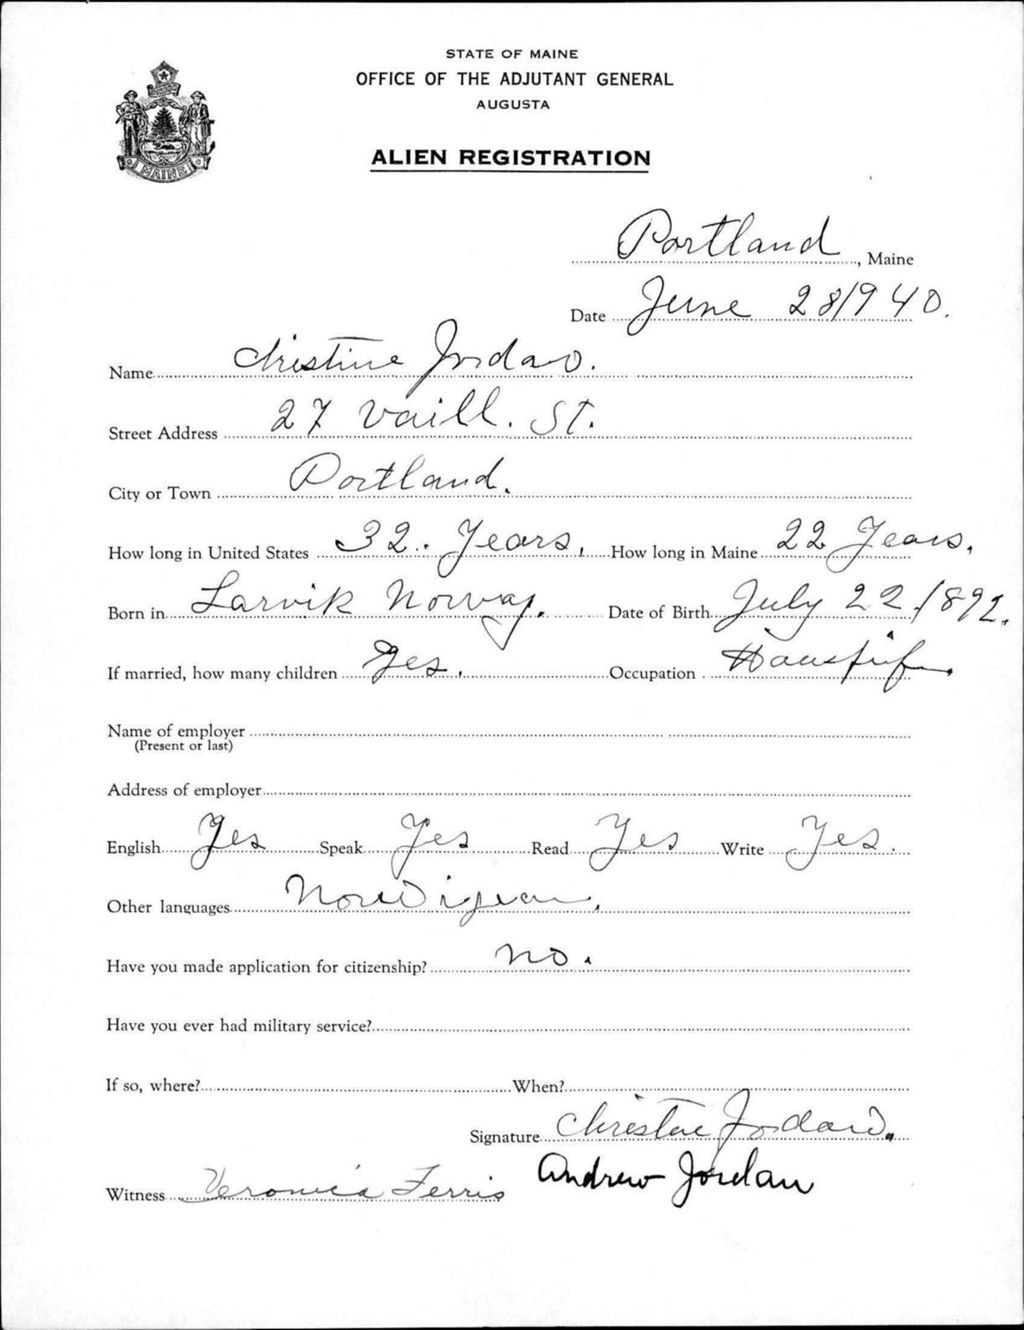 STATE OF MAINE
OFFICE OF THE ADJUTANT GENERAL
AUGUSTA
ALIEN REGISTRATION
MAINE
Portland, Maine
Date June 28 1940.
Name Christine Jordan.
Street Address 27 Vaill. St.
City or Town Portland.
How long in United States 32.. Years, How long in Maine 22 Years.
Born in Larvik Norway. Date of Birth July 22, 1892.
If married, how many children Yes. Occupation
Name of employer
(Present or last)
Address of employer
English Yes Speak Yes Read Yes Write Yes.
Other languages Norwigean.
Have you made application for citizenship? no.
Have you ever had military service?
If so, where? When?
Signature Christine Jordan.
Witness Veronica Ferris Andrew Jordan